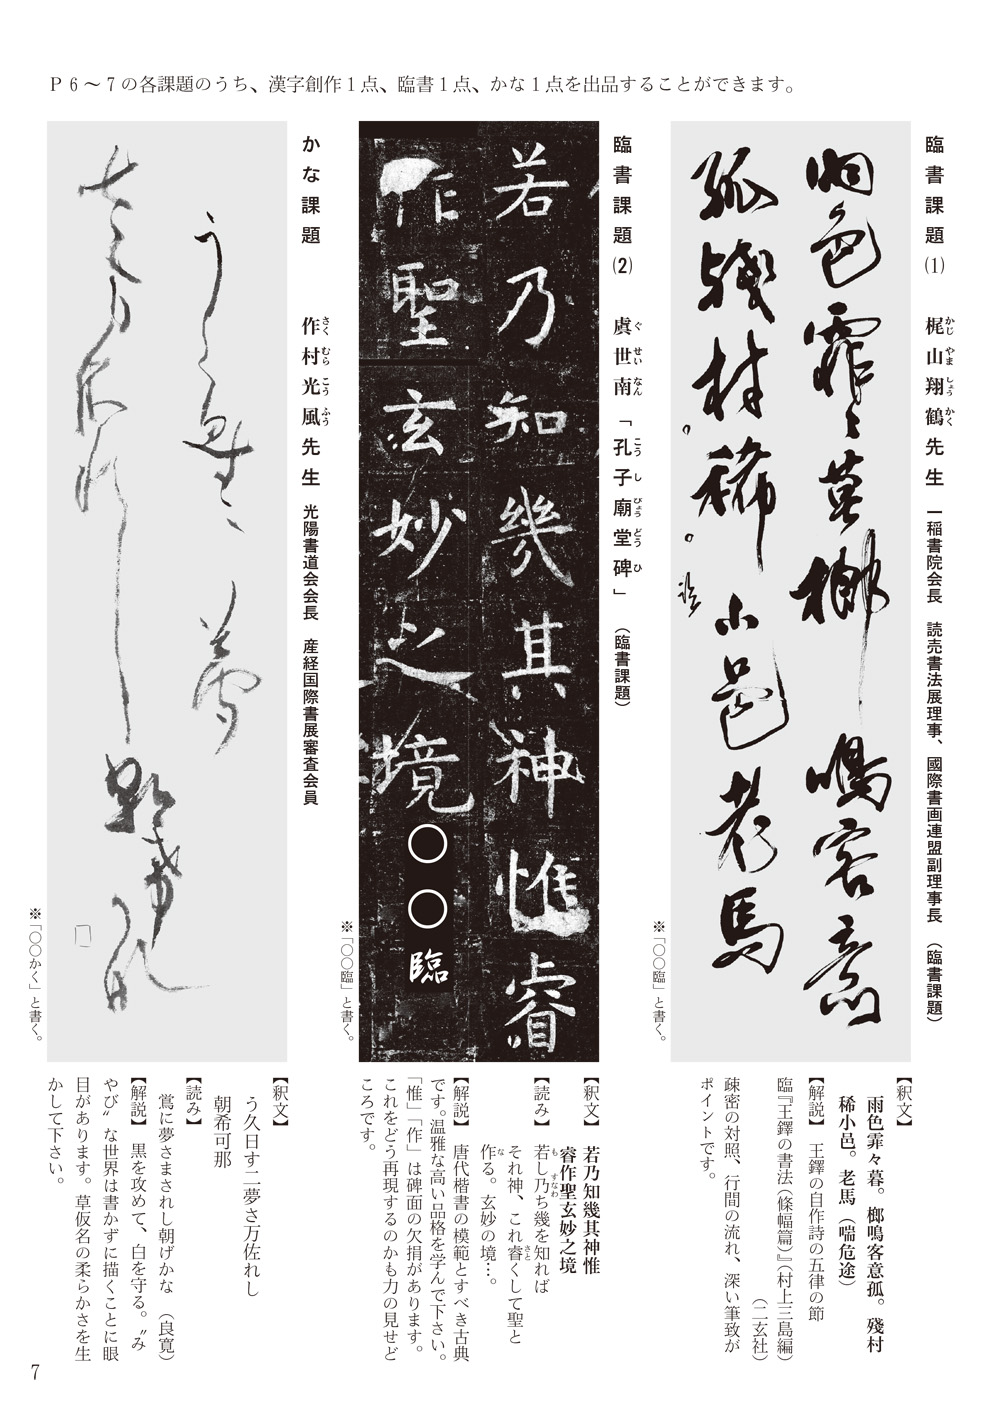 Ｐ６～７の各課題のうち、漢字創作１点、臨書１点、かな１点を出品することができます。
臨書課題⑴　梶山翔鶴先生　一稲書院会長　読売書法展理事、國際書画連盟副理事長　（臨書課題）
かじやましょうかく
雨色霏々莫榔鳴客意
孤殘村稀小邑老馬
臨
※「〇〇臨」と書く。
【釈文】
雨色霏々暮。榔鳴客意孤。殘村
稀小邑。老馬（喘危途）
【解説】　王鐸の自作詩の五律の節
臨『王鐸の書法（條幅篇）』（村上三島編）
（二玄社）
疎密の対照、行間の流れ、深い筆致が
ポイントです。
臨書課題⑵　虞世南「孔子廟堂碑」　（臨書課題）
ぐせいなん　こうしびょうどうひ
若乃知幾其神惟睿
作聖玄妙之境〇〇臨
※「〇〇臨」と書く。
【釈文】　若乃知幾其神惟
睿作聖玄妙之境
【読み】　若し乃ち幾を知れば
も　すなわ
それ神、これ睿くして聖と
さと
作る。玄妙の境…。
な
【解説】　唐代楷書の模範とすべき古典
です。温雅な高い品格を学んで下さい。
「惟」「作」は碑面の欠損があります。
これをどう再現するのかも力の見せど
ころです。
かな課題　作村光風先生　光陽書道会会長　産経国際書展審査会員
さくむらこうふう
う久日す二夢
さ万佐れし朝希可那
※「〇〇かく」と書く。
【釈文】
う久日す二夢さ万佐れし
朝希可那
【読み】
鴬に夢さまされし朝げかな　（良寛）
【解説】　黒を攻めて、白を守る。〝み
やび〟な世界は書かずに描くことに眼
目があります。草仮名の柔らかさを生
かして下さい。
7